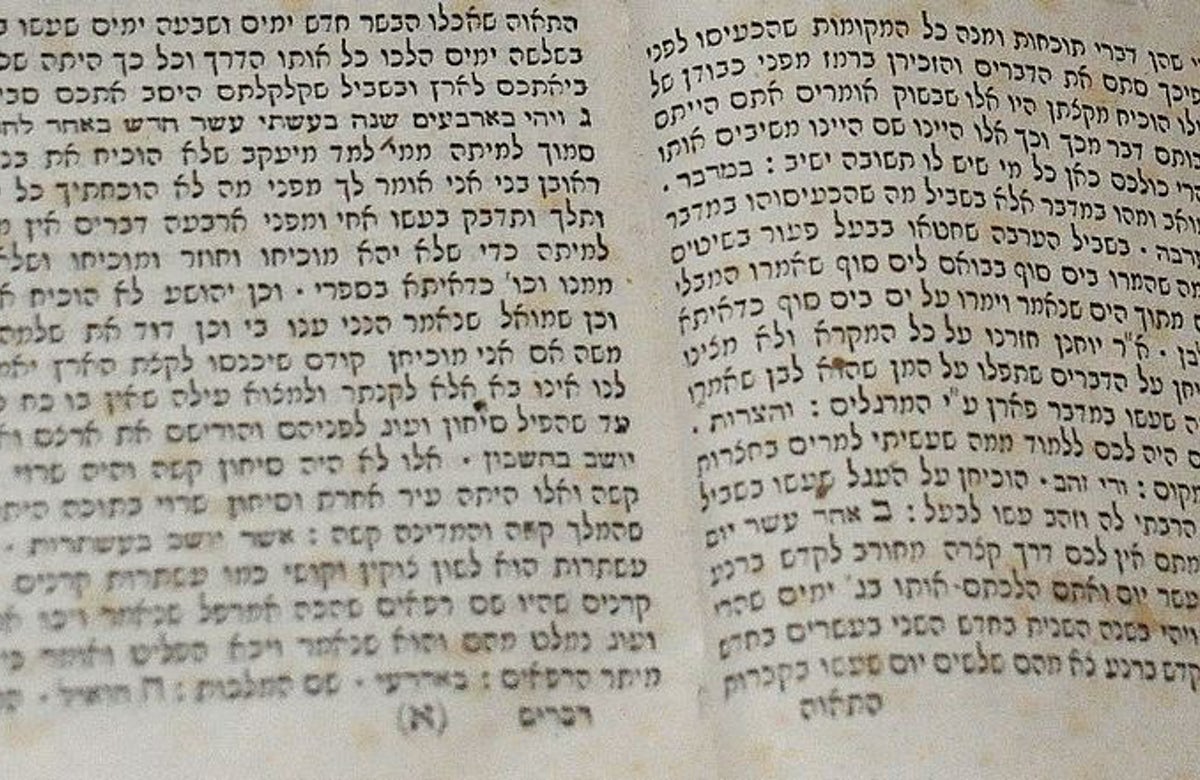 שהן דברי תוכחות ומנה כל המקומות שהכעיסו לפני
סתם את הדברים והזכירן ברמז מפני כבודן של
הוכיח מקצתן היו אלו שבשוק אומרים אתם הייתם
דבר מכך וכך אלו היינו שם היינו משיבים אותו
כולכם כאן כל מי שיש לו תשובה ישיב : במדבר .
ומהו במדבר אלא בשביל מה שהכעיסוהו במדבר
. בשביל הערבה שחטאו בבעל פעור בשיטים
שהמרו בים סוף בבואם לים סוף שאמרו המבלי
מתוך הים שנאמר וימרו על ים בים סוף כדאיתא
. א"ר יוחנן חזרנו על כל המקרא ולא מצינו
על הדברים שתפלו על המן שהוא לבן שאמרו
שעשו במדבר פארן ע"י המרגלים : וחצרות .
היה לכם ללמוד ממה שעשיתי למרים בחצרות
: ודי זהב . הוכיחן על העגל שעשו בשביל
הרבתי לה וזהב עשו לבעל : ב אחד עשר יום
אין לכם דרך קצרה מחורב לקדש ברנע
עשר יום ואתם הלכתם אותו בג' ימים שהרי
ויהי בשנה השנית בחדש השני בעשרים בחדש
ברנע צא מהם שלשים יום שעשו בקברות
התאוה
התאוה שאכלו הבשר חדש ימים ושבעה ימים שעשו
בשלשה ימים הלכו כל אותו הדרך וכל כך היתה
ביאתכם לארץ ובשביל שקלקלתם היסב אתכם
ג ויהי בארבעים שנה בעשתי עשר חדש באחד
סמוך למיתה ממי למד מיעקב שלא הוכיח את
ראובן בני אני אומר לך מפני מה לא הוכחתיך כל
ותלך ותדבק בעשו אחי ומפני ארבעה דברים אין
למיתה כדי שלא יהא מוכיחו וחוזר ומוכיחו
ממנו וכו' כדאיתא בספרי . וכן יהושע לא הוכיח
וכן שמואל שנאמר הנני ענו בי וכן דוד את שלמה
משה אם אני מוכיחן קודם שיכנסו לקצת הארץ
לנו אינו בא אלא לקנתר ולמצוא עילה שאין בו כח
עד שהפיל סיחון ועוג לפניהם והורישם את ארצם
יושב בחשבון . אלו לא היה סיחון קשה והיה שרוי
קשה ואלו היתה עיר אחרת וסיחון שרוי בתוכה
שהמלך קשה והמדינה קשה : אשר יושב בעשתרות .
עשתרות הוא לשון צוקין וקושי כמו עשתרות קרנים
קרנים שהיו שם רפאים שהכה אמרפל שנאמר ויכו
ועוג נמלט מהם והוא שנאמר ויבא הפליט ואומר
מיתר הרפאים : באדרעי . שם המלכות : ה הואיל .
דברים (א)